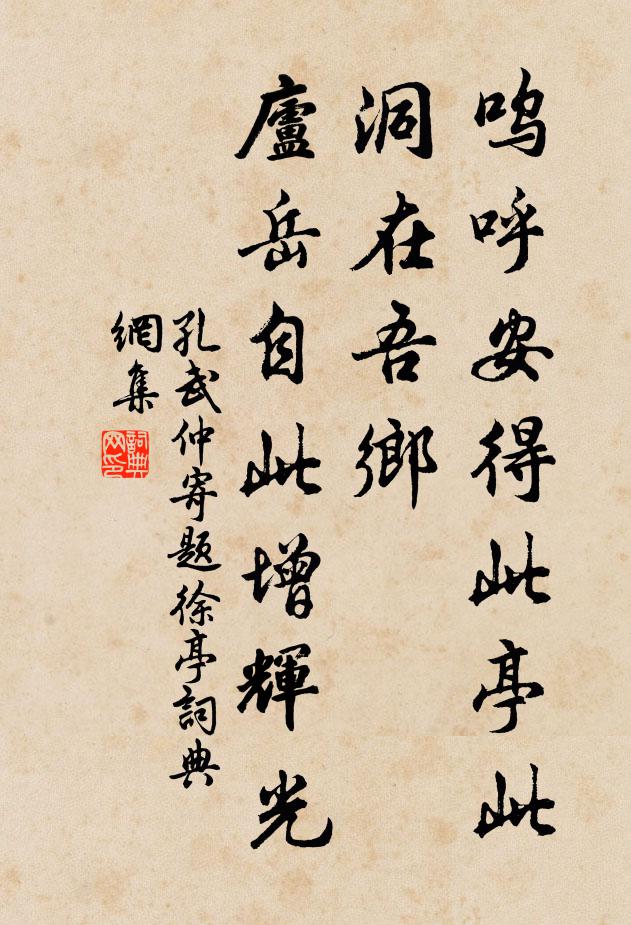 呜呼安得此亭此
洞在吾鄉
廬岳自此增輝光
孔武仲寄題徐亭詞典
網集
詞典
网印